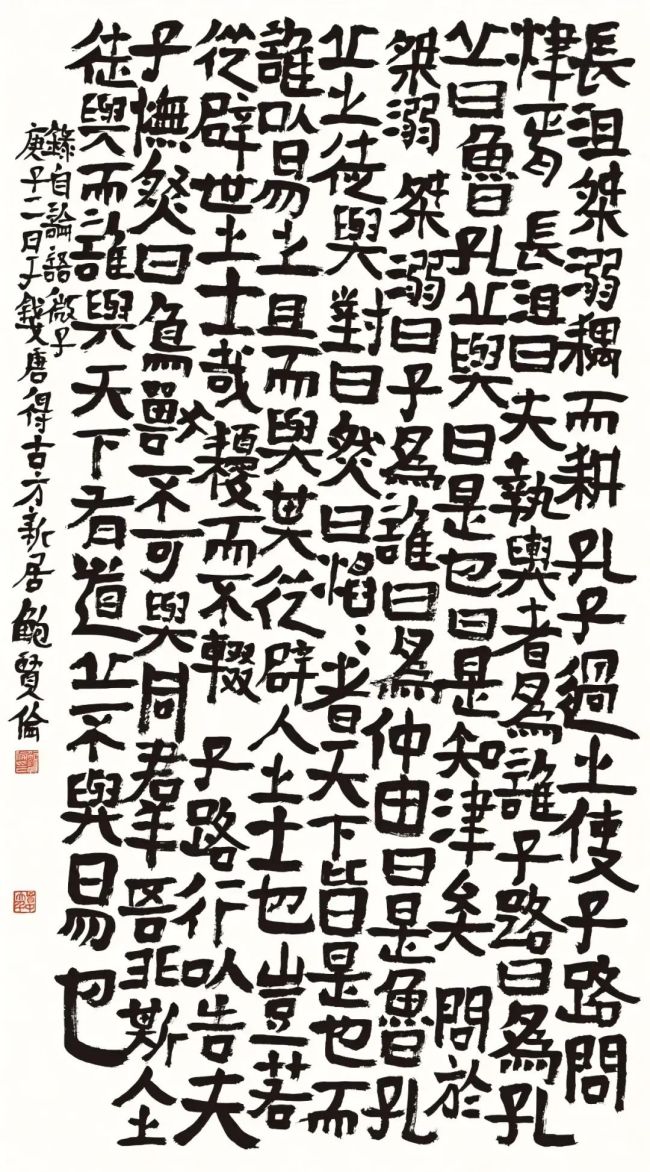 長沮桀溺耦而耕孔子過之使子路問
津焉長沮曰夫執輿者為誰子路曰為孔
丘曰魯孔丘與曰是也曰是知津矣問於
桀溺桀溺曰子為誰曰為仲由曰是魯孔
丘之徒與對曰然曰滔〻者天下皆是也而
誰以易之且而與其從辟人之士也豈若
從辟世之士哉耰而不輟子路行以告夫
子憮然曰鳥獸不可與同羣吾非斯人之
徒與而誰與天下有道丘不與易也
錄自論語微子
庚子二日于錢唐得古方新居鮑賢倫